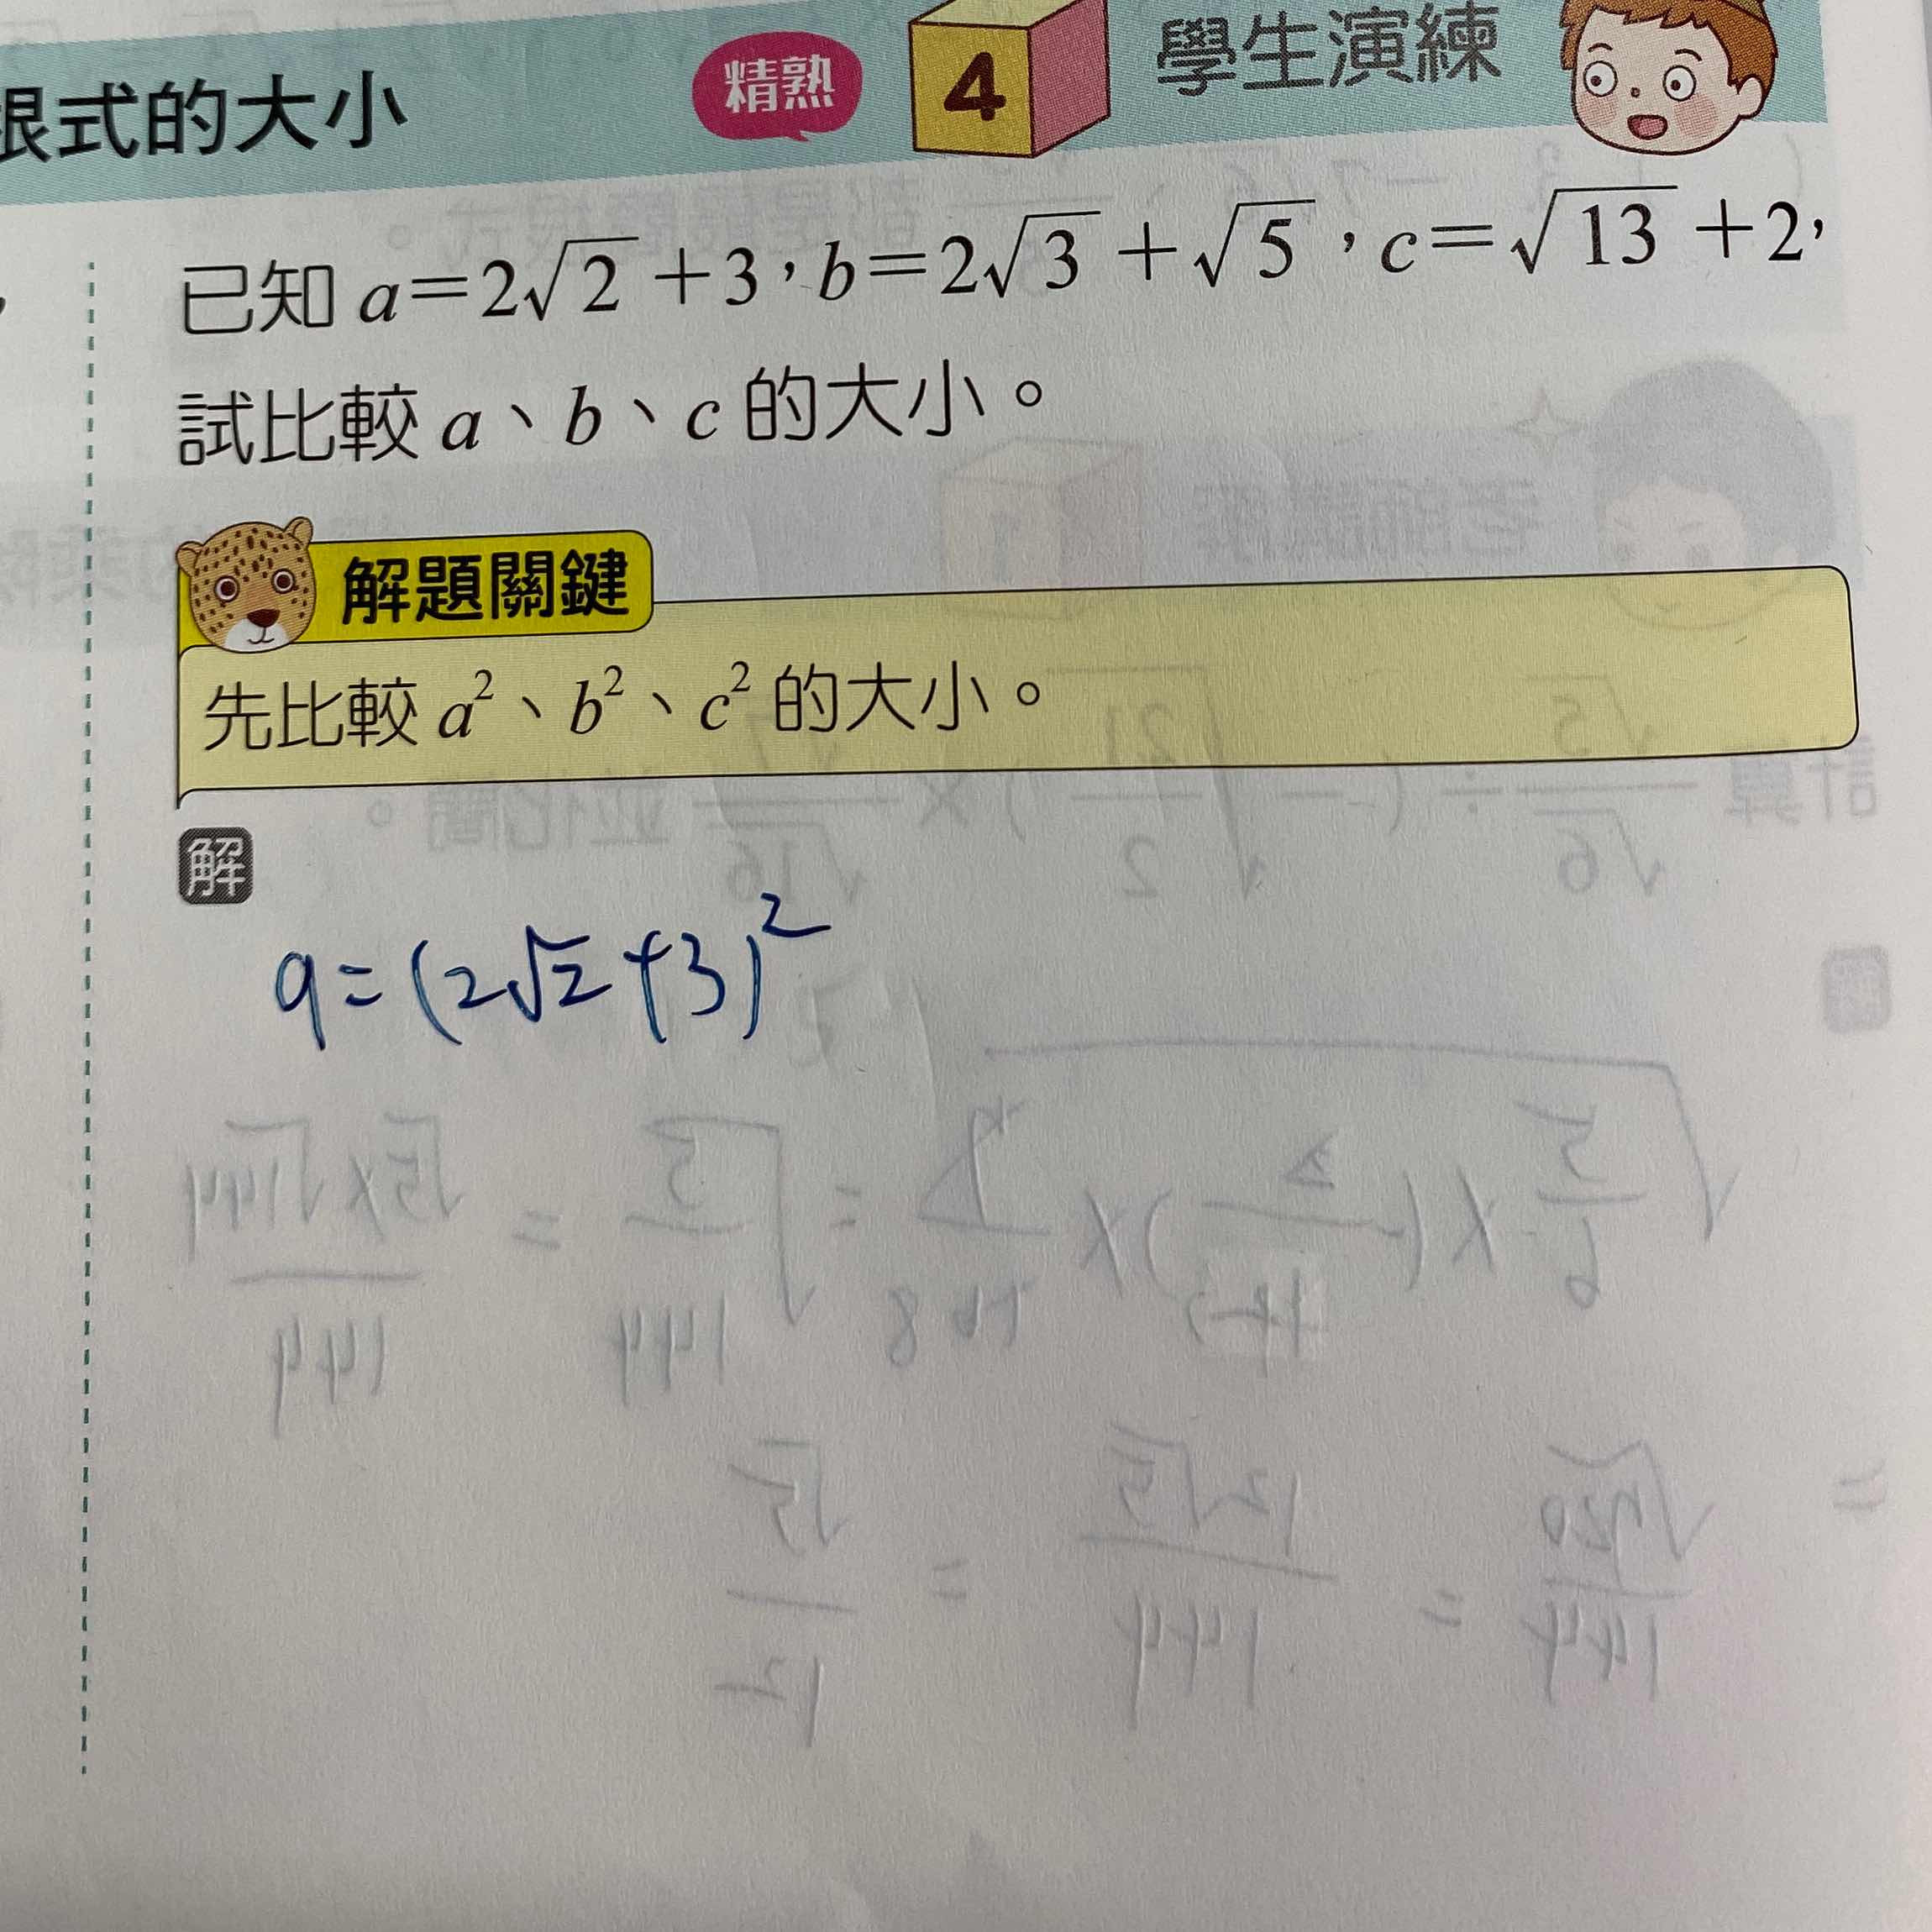 根式的大小 精熟 4 學生演練
已知 a=2√2+3,b=2√3+√5,c=√13+2,
試比較 a、b、c 的大小。
解題關鍵
先比較 a²、b²、c² 的大小。
解
a=(2√2+3)²